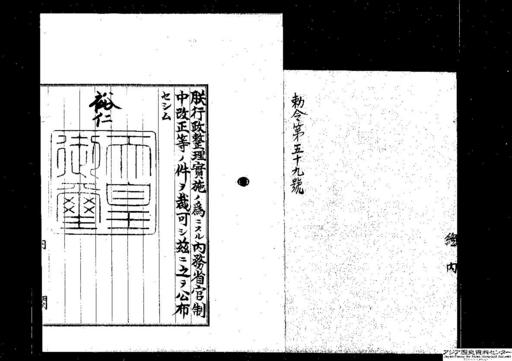 勅令第五十九號
總
内
朕行政整理實施ノ爲ニスル内務省官制
中改正等ノ件ヲ裁可シ茲ニ之ヲ公布
セシム
裕仁
天皇
御璽
内
閣
アジア歴史資料センター
Japan Center for Asian Historical Records